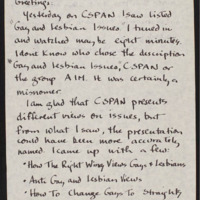 Greeting:
Yesterday on CSPAN I saw listed
Gay and Lesbian Issues. I tuned in
and watched may be eight minutes.
I done know who chose the description
"Gay and Lesbian Issues," CSPAN or
the group AIM. It was certainly, a
misnomer.
I am glad that CSPAN presents
different views on issues, but
from what I saw, the presentation
could have been more accurately,
named. I came up with a few:
• How The Right Wing Views Gays & Lesbians
• Anti Gay and Lesbian Views
• How To Change Gays To Straights